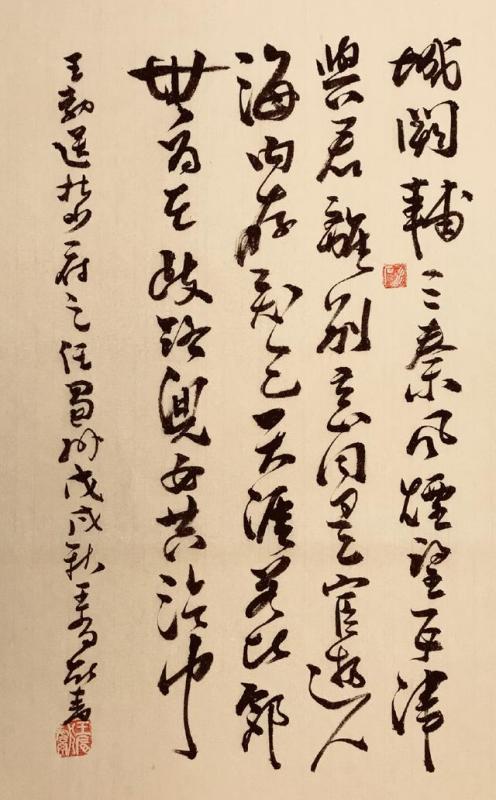 城闕輔三秦風煙望五津
與君離別意同是宦遊人
海內存知己天涯若比鄰
無為在歧路兒女共沾巾
王勃送杜少府之任蜀州戊戌秋王書